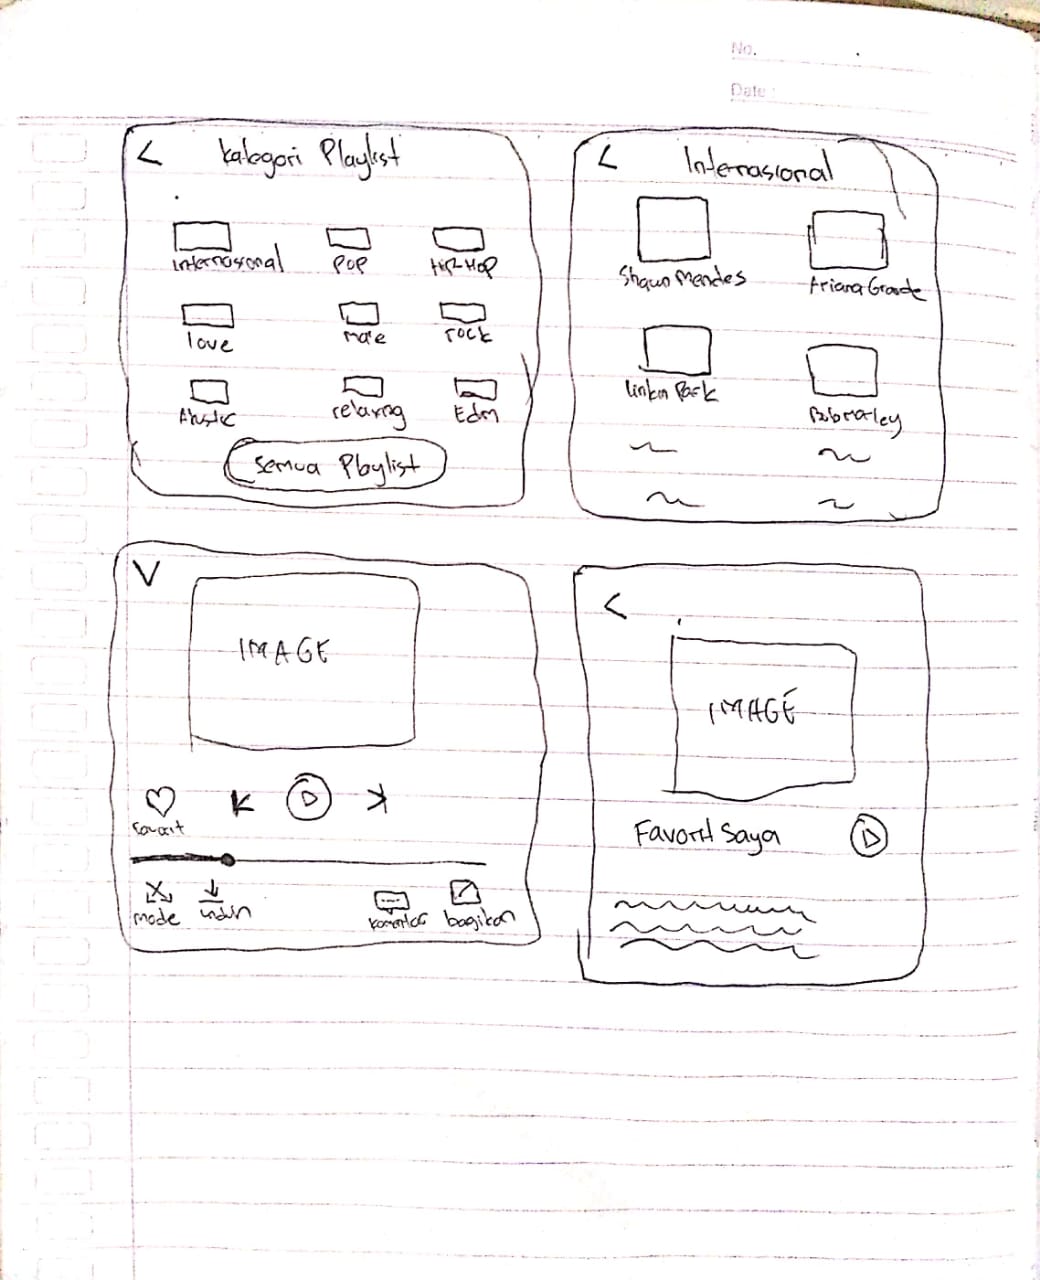 No.
Date :
< Kategori Playlist
Internasional POP HIP-HOP
love rock
relaxing Edm
Semua Playlist
< Internasional
Shawn Mendes Ariana Grande
Linkin Park
IMAGE
Favorit
mode unduh komentar bagikan
<
IMAGE
Favorit Saya